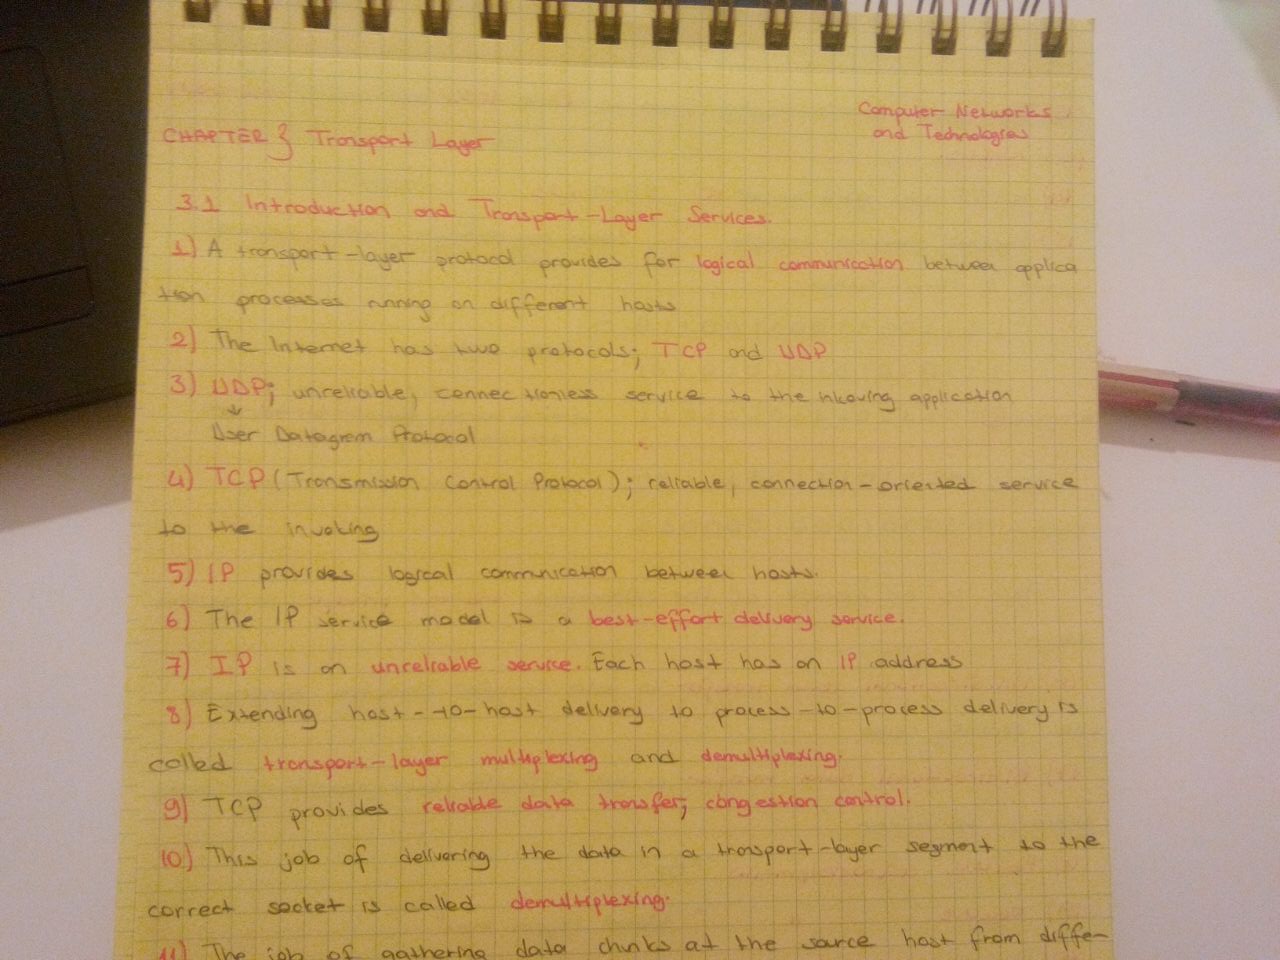 Computer Networks
and Technologies
CHAPTER 3 Transport Layer
3.1 Introduction and Transport-Layer Services.
1) A transport-layer protocol provides for logical communication between applica
tion processes running on different hosts
2) The Internet has two protocols; TCP and UDP
3) UDP; unreliable, connectionless service to the application
User Datagram Protocol
4) TCP (Transmission Control Protocol); reliable, connection-oriented service
to the invoking
5) IP provides logical communication between hosts.
6) The IP service model is a best-effort delivery service.
7) IP is an unreliable service. Each host has an IP address
8) Extending host-to-host delivery to process-to-process delivery is
called transport-layer multiplexing and demultiplexing.
9) TCP provides reliable data transfer, congestion control.
10) This job of delivering the data in a transport-layer segment to the
correct socket is called demultiplexing.
11) The job of gathering data chunks at the source host from diffe-